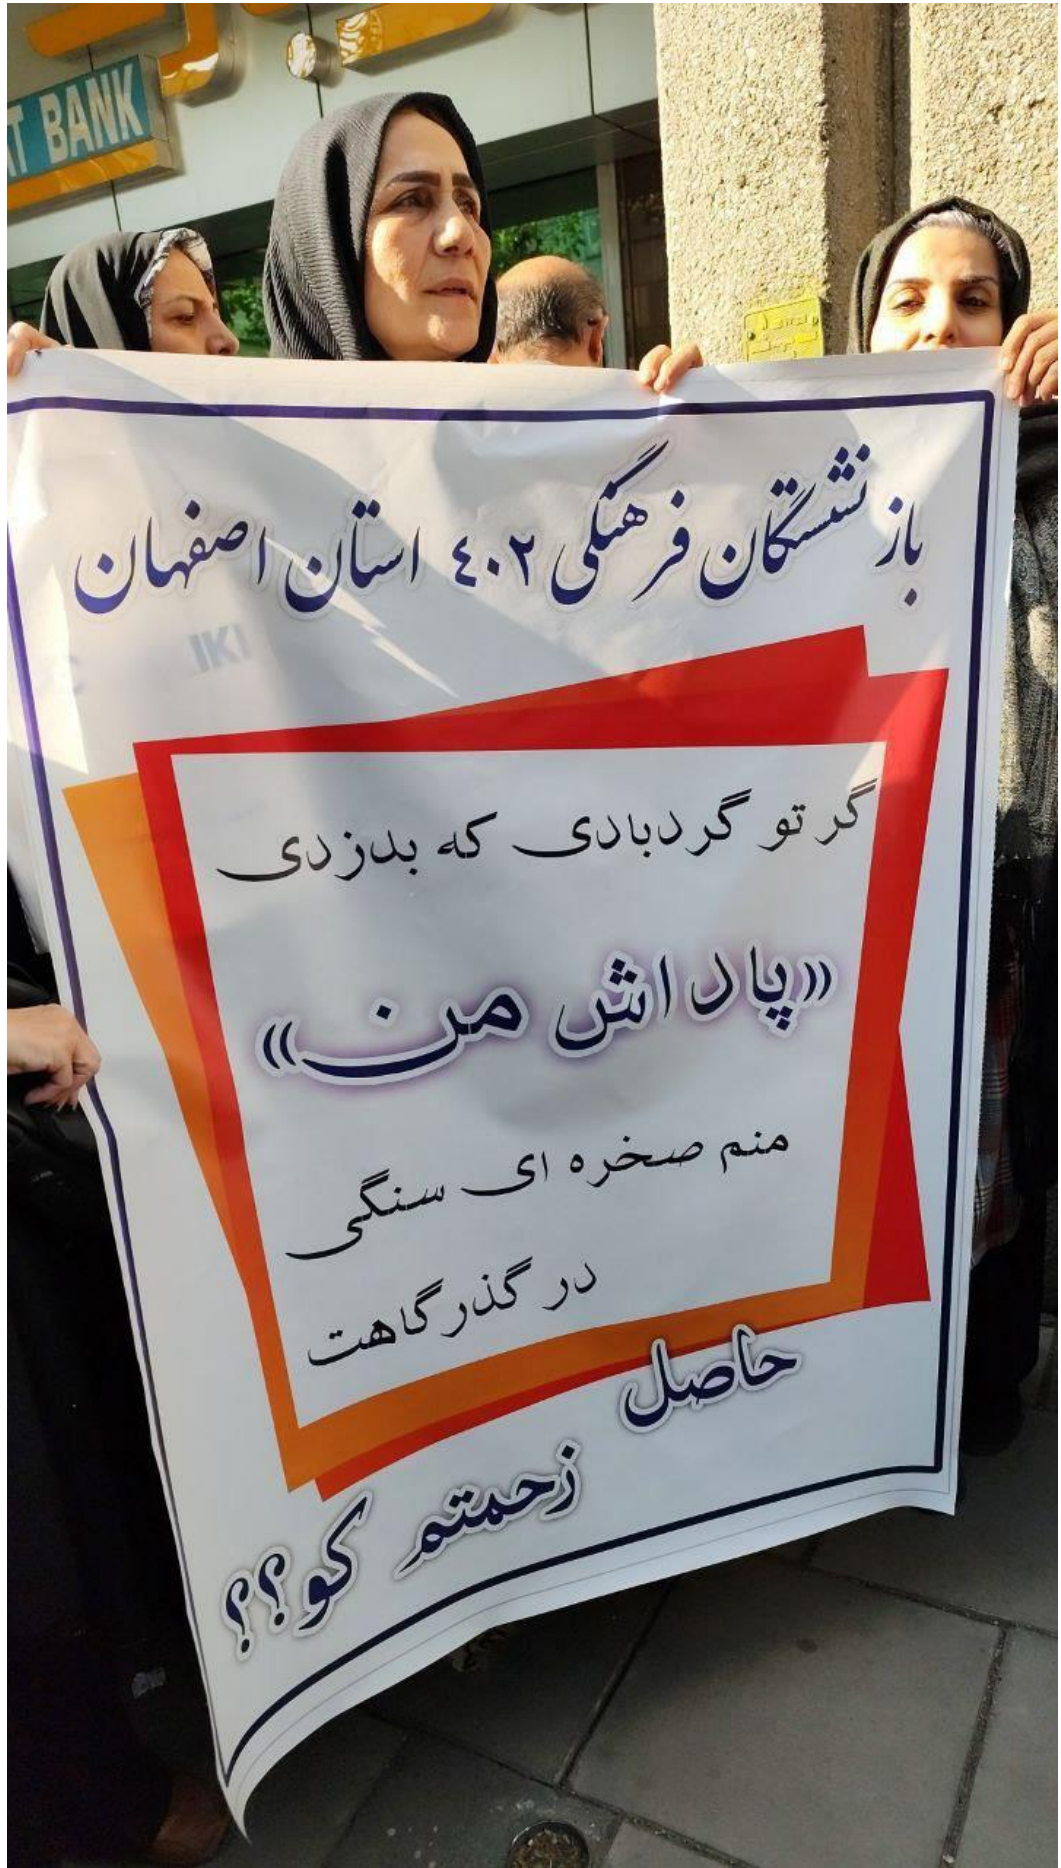 T BANK
بازنشستگان فرهنگی ۴۰۲ استان اصفهان
گر تو گردبادی که بدزدی
«پاداش من»
منم صخره ای سنگی
در گذرگاهت
حاصل
زحمتم کو؟؟